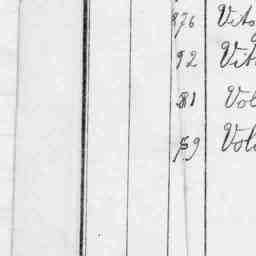 876 Vits
92 Vit
81 Vol
59 Vol